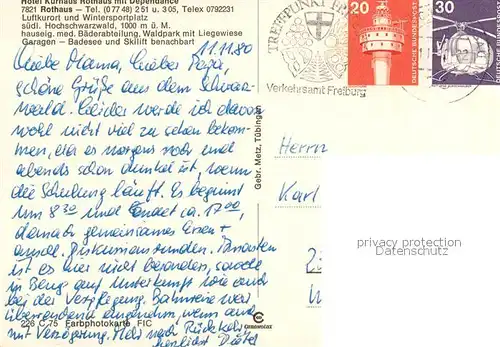 Hotel Kurhaus Rothaus mit Dependance
7821 Rothaus – Tel. (0 77 48) 2 51 u. 3 05, Telex 0792231
Luftkurort und Wintersportplatz
südl. Hochschwarzwald, 1000 m ü. M.
hauseig. med. Bäderabteilung, Waldpark mit Liegewiese
Garagen – Badesee und Skilift benachbart
11.11.80
Liebe Mama, lieber Papa
schöne Grüße aus dem Schwarz-
wald. Leider werde ich davon
wohl nicht viel zu sehen bekom-
men, da es morgens noch und
abends schon dunkel ist, wenn
die Schulung läuft. Es beginnt
um 8 30 und endet ca. 17 00,
danach gemeinsames Essen +
anschl. Diskussionsrunden. Ansonsten
ist es hier nicht besonders, sowohl
in Bezug auf Unterkunft wie auch
bei der Verpflegung. Bahnreise war
überwiegend angenehm, wenn auch
mit Verzögerung. Rückkehr
herzlichst
226 C 75 Farbphotokarte FIC
Gebr. Metz, Tübingen
TREFFPUNKT
Verkehrsamt Freiburg
20
DEUTSCHE BUNDESPOST
30
DEUTSCHE BUNDESPOST
Herrn
Karl
privacy protection
Datenschutz